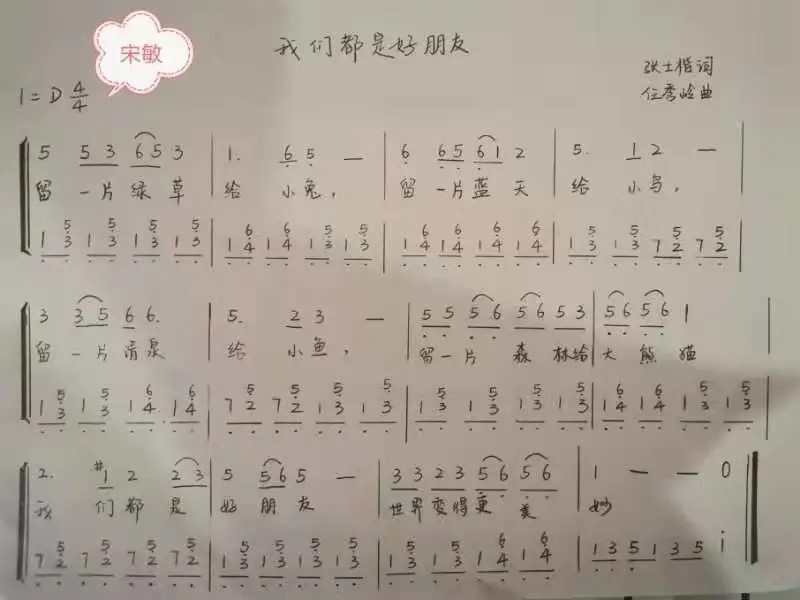 宋敏
我们都是好朋友
张士楷词
1=D 4/4
任秀岭曲
5 5 3 6 5 3 | 1. 6 5 — | 6 6 5 6 1 2 | 5. 1 2 — |
留一片绿草 给 小兔, 留一片蓝天 给 小鸟,
3 3 5 6 6. | 5. 2 3 — | 5 5 5 6 5 6 5 3 | 5 6 5 6 1
留一片清泉 给 小鱼, 留一片 森 林给 大 熊 猫
2. #1 2 2 3 | 5 5 6 5 — | 3 3 2 3 5 6 5 6 | 1 — — 0
我 们都是 好朋友 世界变得更 美 妙